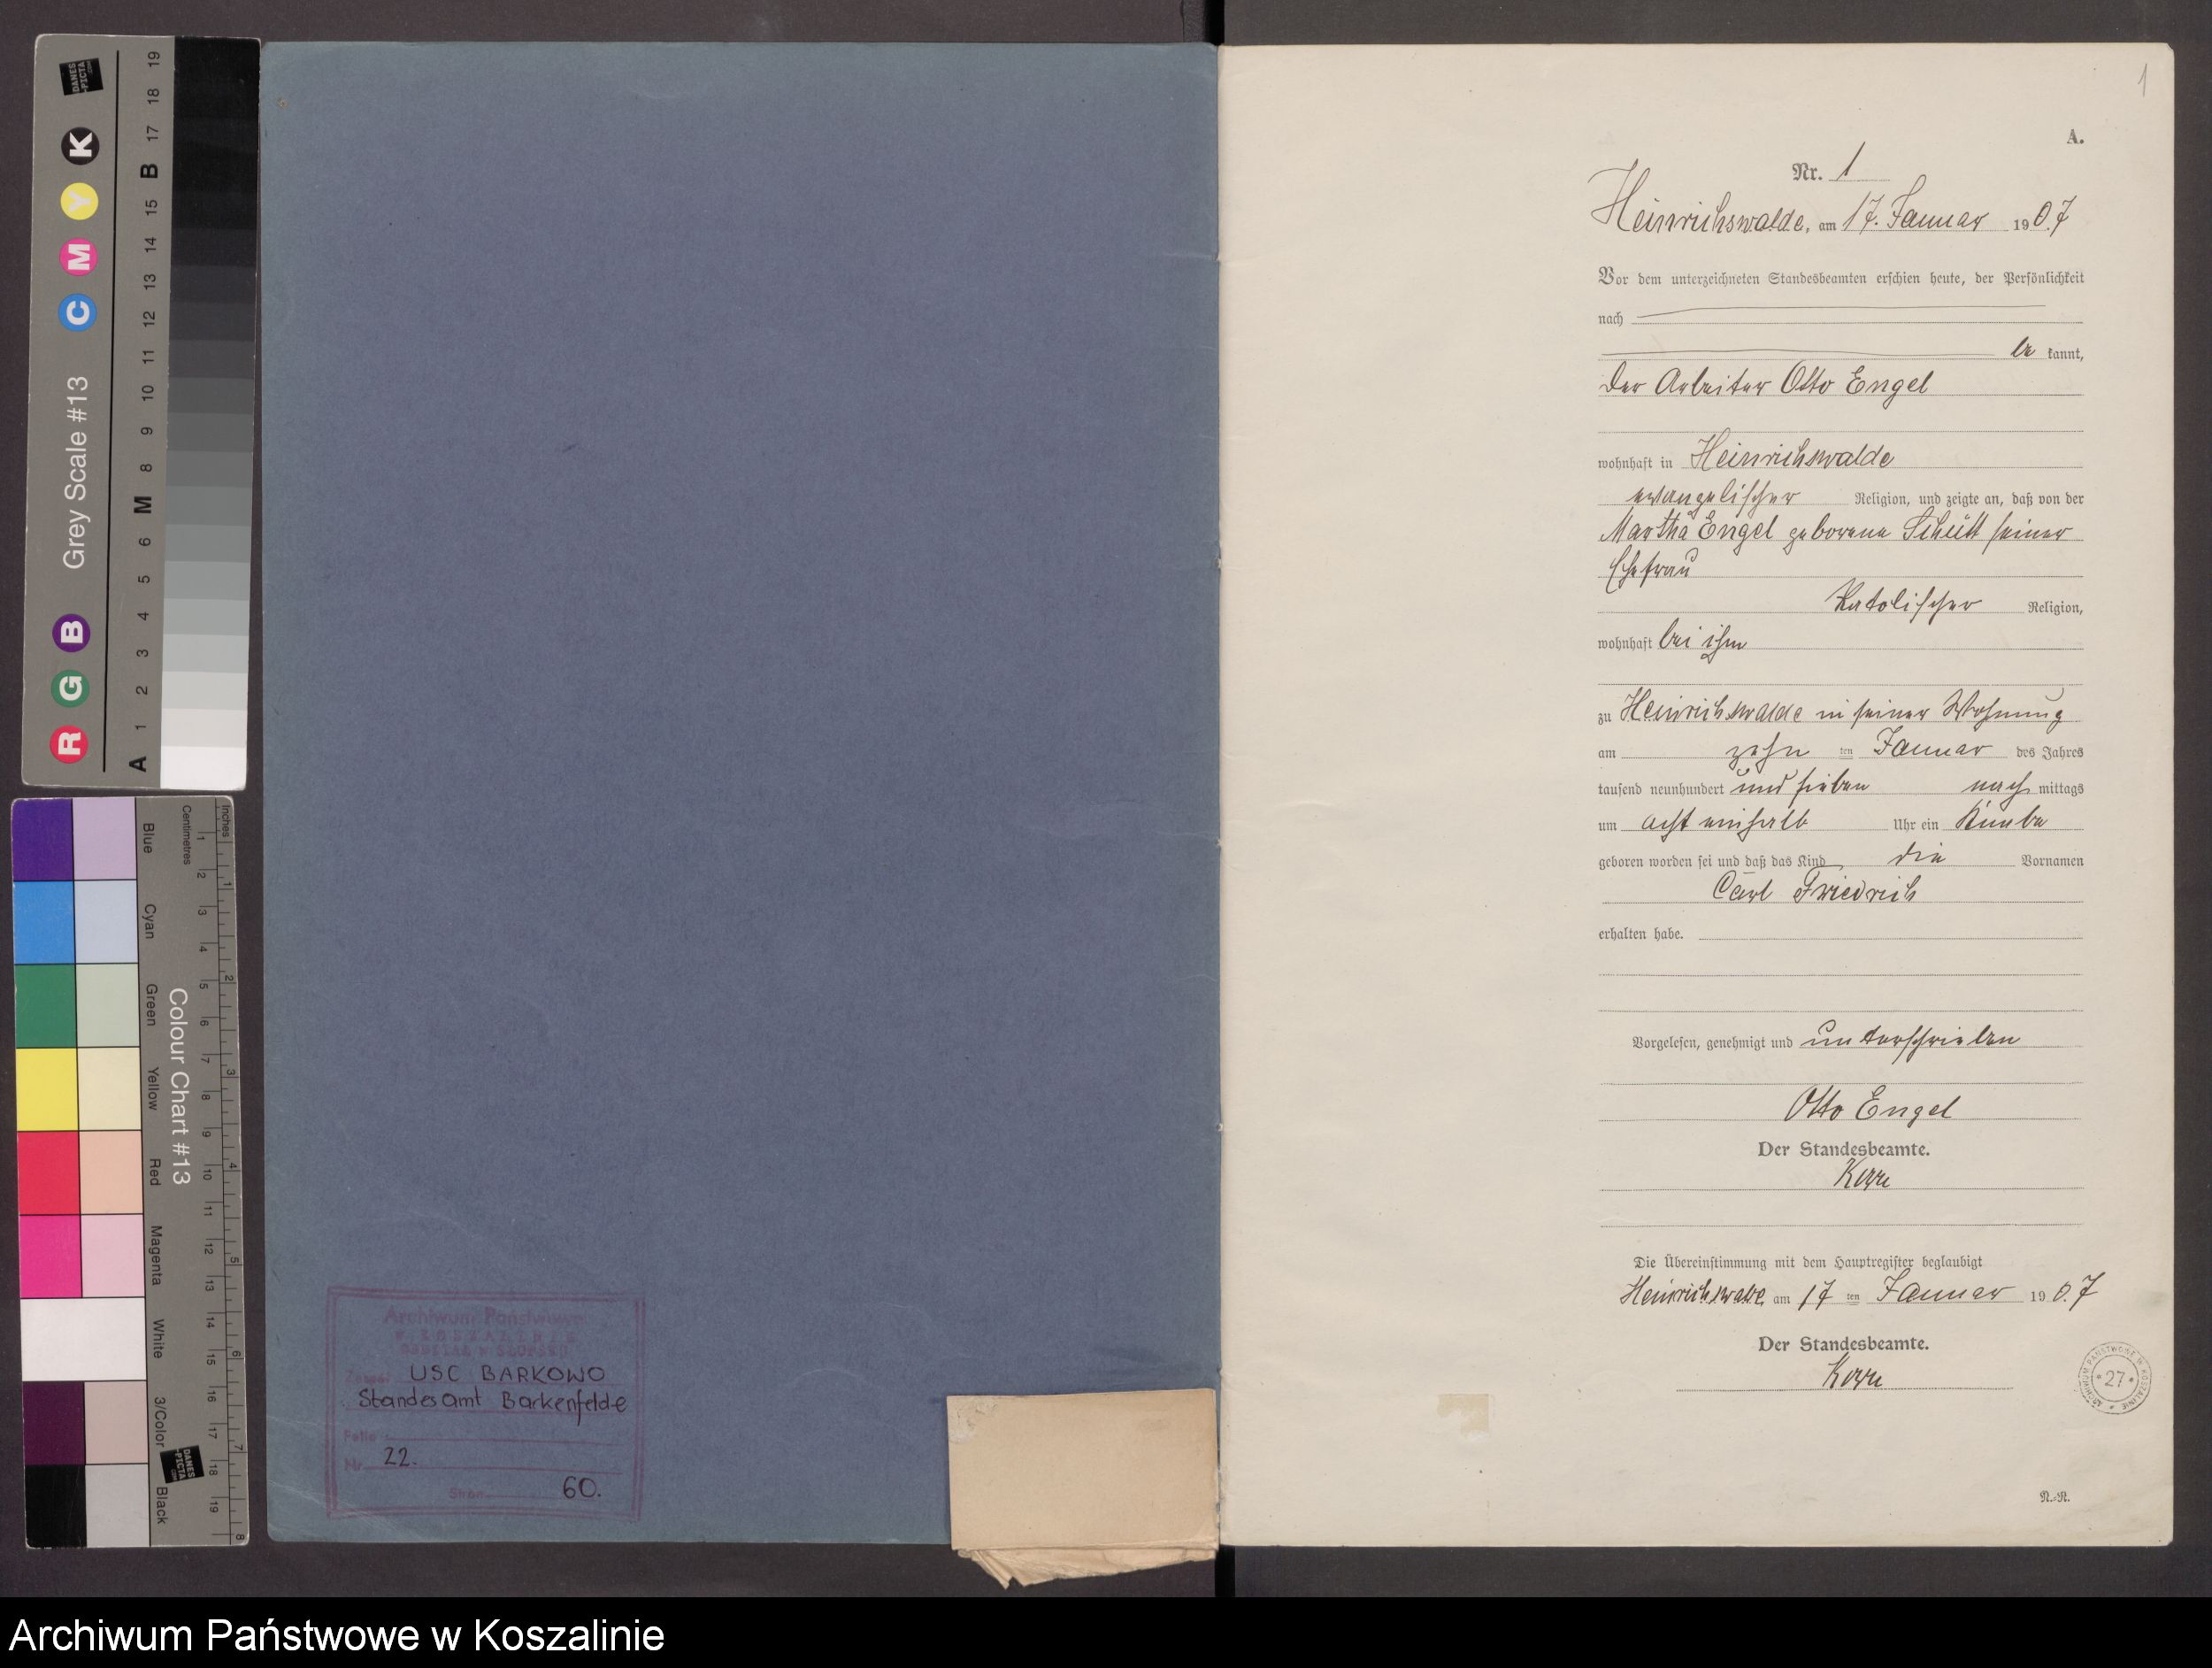 DANES
-PICTA
.COM
Grey Scale #13
R G B C M Y K
A 1 2 3 4 5 6 M 8 9 10 11 12 13 14 15 B 17 18 19
Inches
Centimetres
Colour Chart #13
Blue
Cyan
Green
Yellow
Red
Magenta
White
3/Color
Black
1 2 3 4 5 6 7 8 9 10 11 12 13 14 15 16 17 18 19
1 2 3 4 5 6 7 8
DANES
-PICTA
.COM
Archiwum Państwowe
W KOSZALINIE
ODDZIAŁ W SŁUPSKU
Zespół USC BARKOWO
Standesamt Barkenfelde
Nr 22.
Stron 60.
1
A.
Nr. 1
Heinrichswalde, am 17. Januar 1907
Vor dem unterzeichneten Standesbeamten erschien heute, der Persönlichkeit
nach
be kannt,
der Arbeiter Otto Engel
wohnhaft in Heinrichswalde
evangelischer Religion, und zeigte an, daß von der
Martha Engel geborene Schütt seiner
Ehefrau
katolischer Religion,
wohnhaft bei ihm
zu Heinrichswalde in seiner Wohnung
am zehn ten Januar des Jahres
tausend neunhundert und sieben nach mittags
um acht einhalb Uhr ein Knabe
geboren worden sei und daß das Kind die Vornamen
Carl Friedrich
erhalten habe.
Vorgelesen, genehmigt und unterschrieben
Otto Engel
Der Standesbeamte.
Die Übereinstimmung mit dem Hauptregister beglaubigt
Heinrichswalde am 17 ten Januar 1907
Der Standesbeamte.
ARCHIWUM PAŃSTWOWE W KOSZALINIE
* 27 *
N.-R.
Archiwum Państwowe w Koszalinie